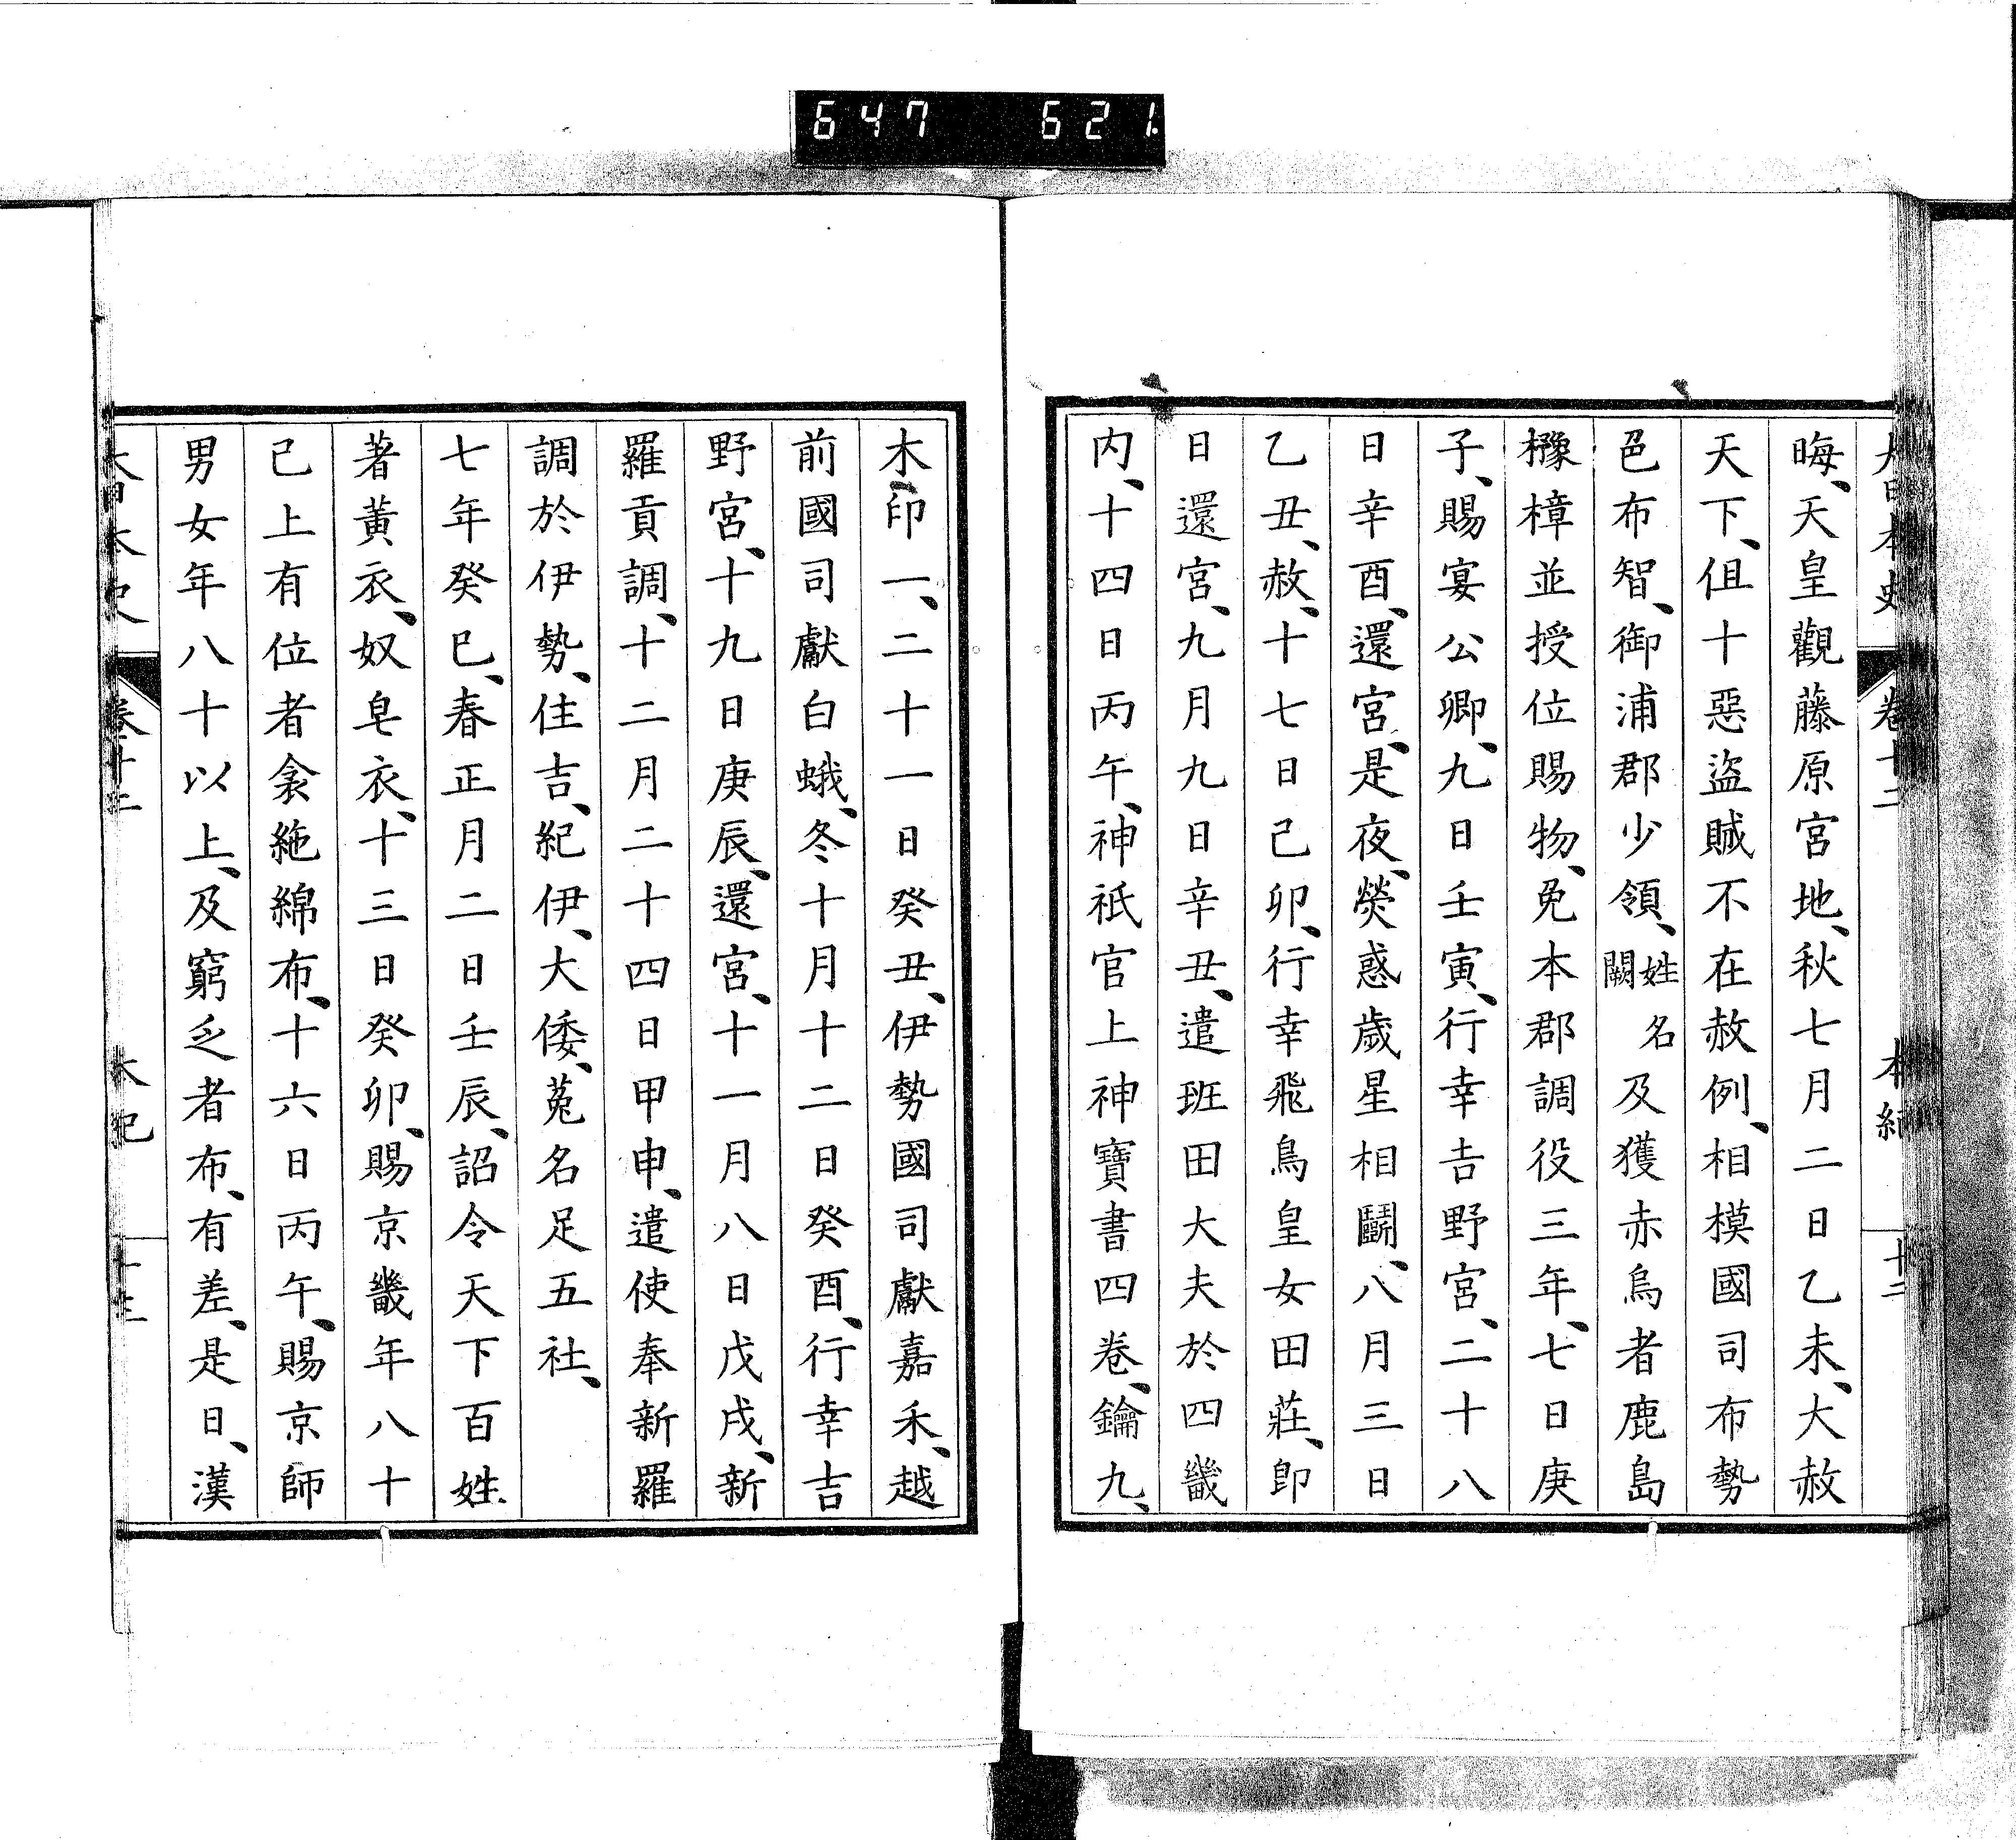 647 621
大日本史 卷十二 本紀 十二
晦、天皇觀藤原宮地、秋七月二日乙未、大赦
天下、但十惡盜賊不在赦例、相模國司布勢
色布智、御浦郡少領、姓名闕及獲赤烏者鹿島
櫲樟並授位賜物、免本郡調役三年、七日庚
子、賜宴公卿、九日壬寅、行幸吉野宮、二十八
日辛酉、還宮、是夜、熒惑歲星相鬭、八月三日
乙丑、赦、十七日己卯、行幸飛鳥皇女田莊、卽
日還宮、九月九日辛丑、遣班田大夫於四畿
内、十四日丙午、神祇官上神寶書四卷、鑰九、
木印一、二十一日癸丑、伊勢國司獻嘉禾、越
前國司獻白蛾、冬十月十二日癸酉、行幸吉
野宮、十九日庚辰、還宮、十一月八日戊戌、新
羅貢調、十二月二十四日甲申、遣使奉新羅
調於伊勢、住吉、紀伊、大倭、菟名足五社、
七年癸巳、春正月二日壬辰、詔令天下百姓
著黃衣、奴皂衣、十三日癸卯、賜京畿年八十
已上有位者衾絁綿布、十六日丙午、賜京師
男女年八十以上、及窮乏者布、有差、是日、漢
大日本史 卷十二 本紀 十三